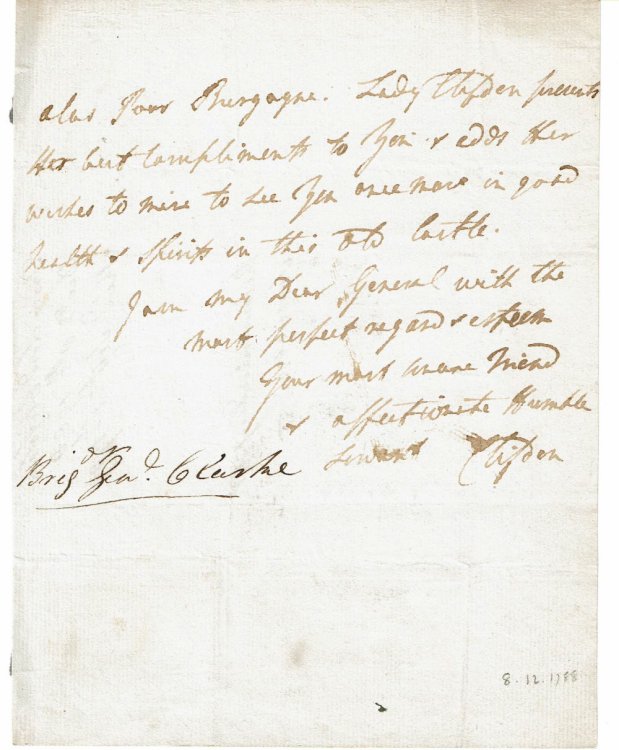 alas Poor Burgogne. Lady Clifden presents
Her best Compliments to You & adds Her
wishes to mine to see You once more in good
health & spirits in this old Castle.
I am my Dear General with the
most perfect regard & esteem
Your most sincere Friend
& affectionate Humble
Servant Clifden
Brigdr Genl. Clarke
8.12.1788